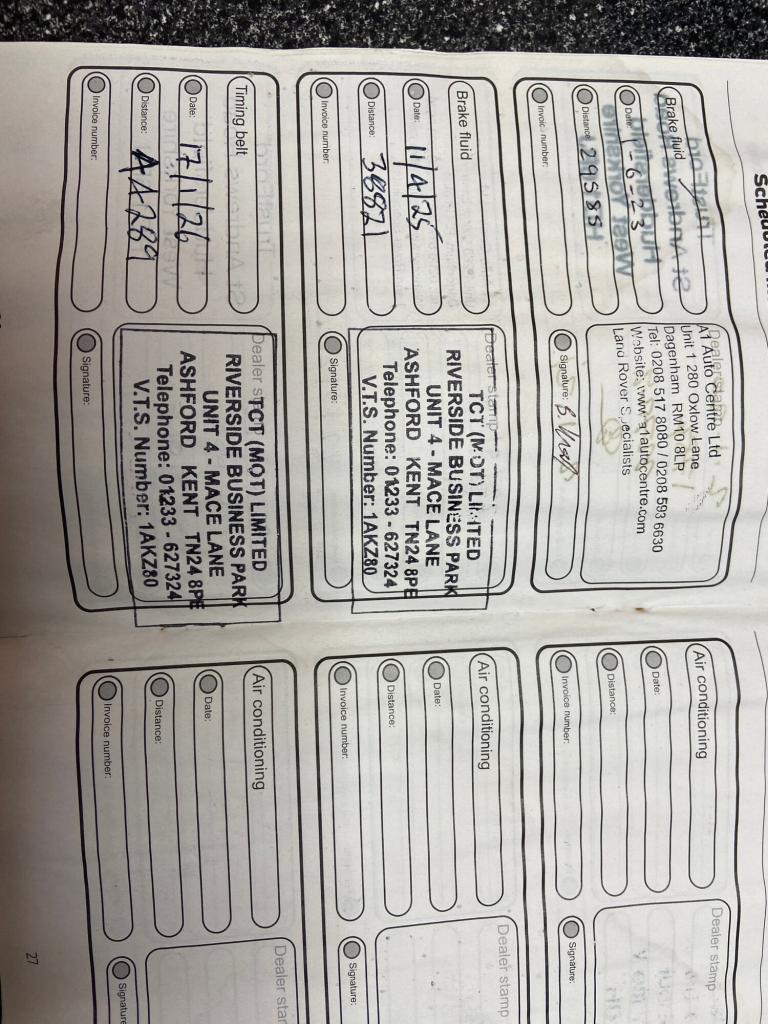 Brake fluid
Date: 1-6-23
Distance: 29585
Invoice number:
Dealer stamp
A1 Auto Centre Ltd
Unit 1 280 Oxlow Lane
Dagenham RM10 8LP
Tel: 0208 517 8080 / 0208 593 6630
Website: www.a1autocentre.com
Land Rover Specialists
Signature:
Brake fluid
Date: 11/4/25
Distance: 38821
Invoice number:
Dealer stamp
TCT (MOT) LIMITED
RIVERSIDE BUSINESS PARK
UNIT 4 - MACE LANE
ASHFORD KENT TN24 8PE
Telephone: 01233 - 627324
V.T.S. Number: 1AKZ80
Signature:
Timing belt
Date: 17/1/26
Distance: 44289
Invoice number:
Dealer s
TCT (MOT) LIMITED
RIVERSIDE BUSINESS PARK
UNIT 4 - MACE LANE
ASHFORD KENT TN24 8PE
Telephone: 01233 - 627324
V.T.S. Number: 1AKZ80
Signature:
Air conditioning
Date:
Distance:
Invoice number:
Dealer stamp
Signature:
Air conditioning
Date:
Distance:
Invoice number:
Dealer stamp
Signature:
Air conditioning
Date:
Distance:
Invoice number:
Dealer star
Signature
27